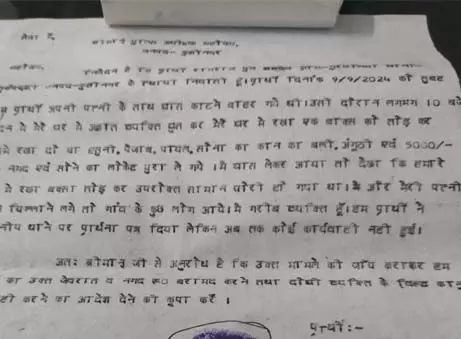 सेवा में,
श्रीमान पुलिस अधीक्षक महोदय,
जनपद-
महोदय,
निवेदन है कि प्रार्थी
के स्थायी निवासी है। प्रार्थी दिनांक 9/9/2024 को सुबह
प्रार्थी अपनी पत्नी के साथ घास काटने बाहर गये थी। उसी दौरान लगभग 10 बजे
में मेरे घर में अज्ञात व्यक्ति घुस कर मेरे घर मे रखा एक बाक्स को तोड़ कर
रखा दो पैजाब, पायल, सोना का कान का बाली, अंगुठी एवं 5000/-
नगद एवं सोने का लोकेट चुरा ले गये। मै घास लेकर आया तो देखा कि हमारे
मे रखा बक्सा तोड़ कर उपरोक्त सामान चोरी हो गया था। मै और मेरी पत्नी
चिल्लाने लगे तो गांव के कुछ लोग आये। मै गरीब व्यक्ति हूँ। हम प्रार्थी ने
थाने पर प्रार्थना पत्र दिया लेकिन अब तक कोई कार्यवाही नही हुई।
अतः श्रीमान् जी से अनुरोध है कि उक्त मामले की जाँच कराकर हम
का उक्त जेवरात व नगद रू0 बरामद करने तथा दोषी व्यक्ति के विरूद्ध
करने का आदेश देने की कृपा करें ।
प्रार्थी:-